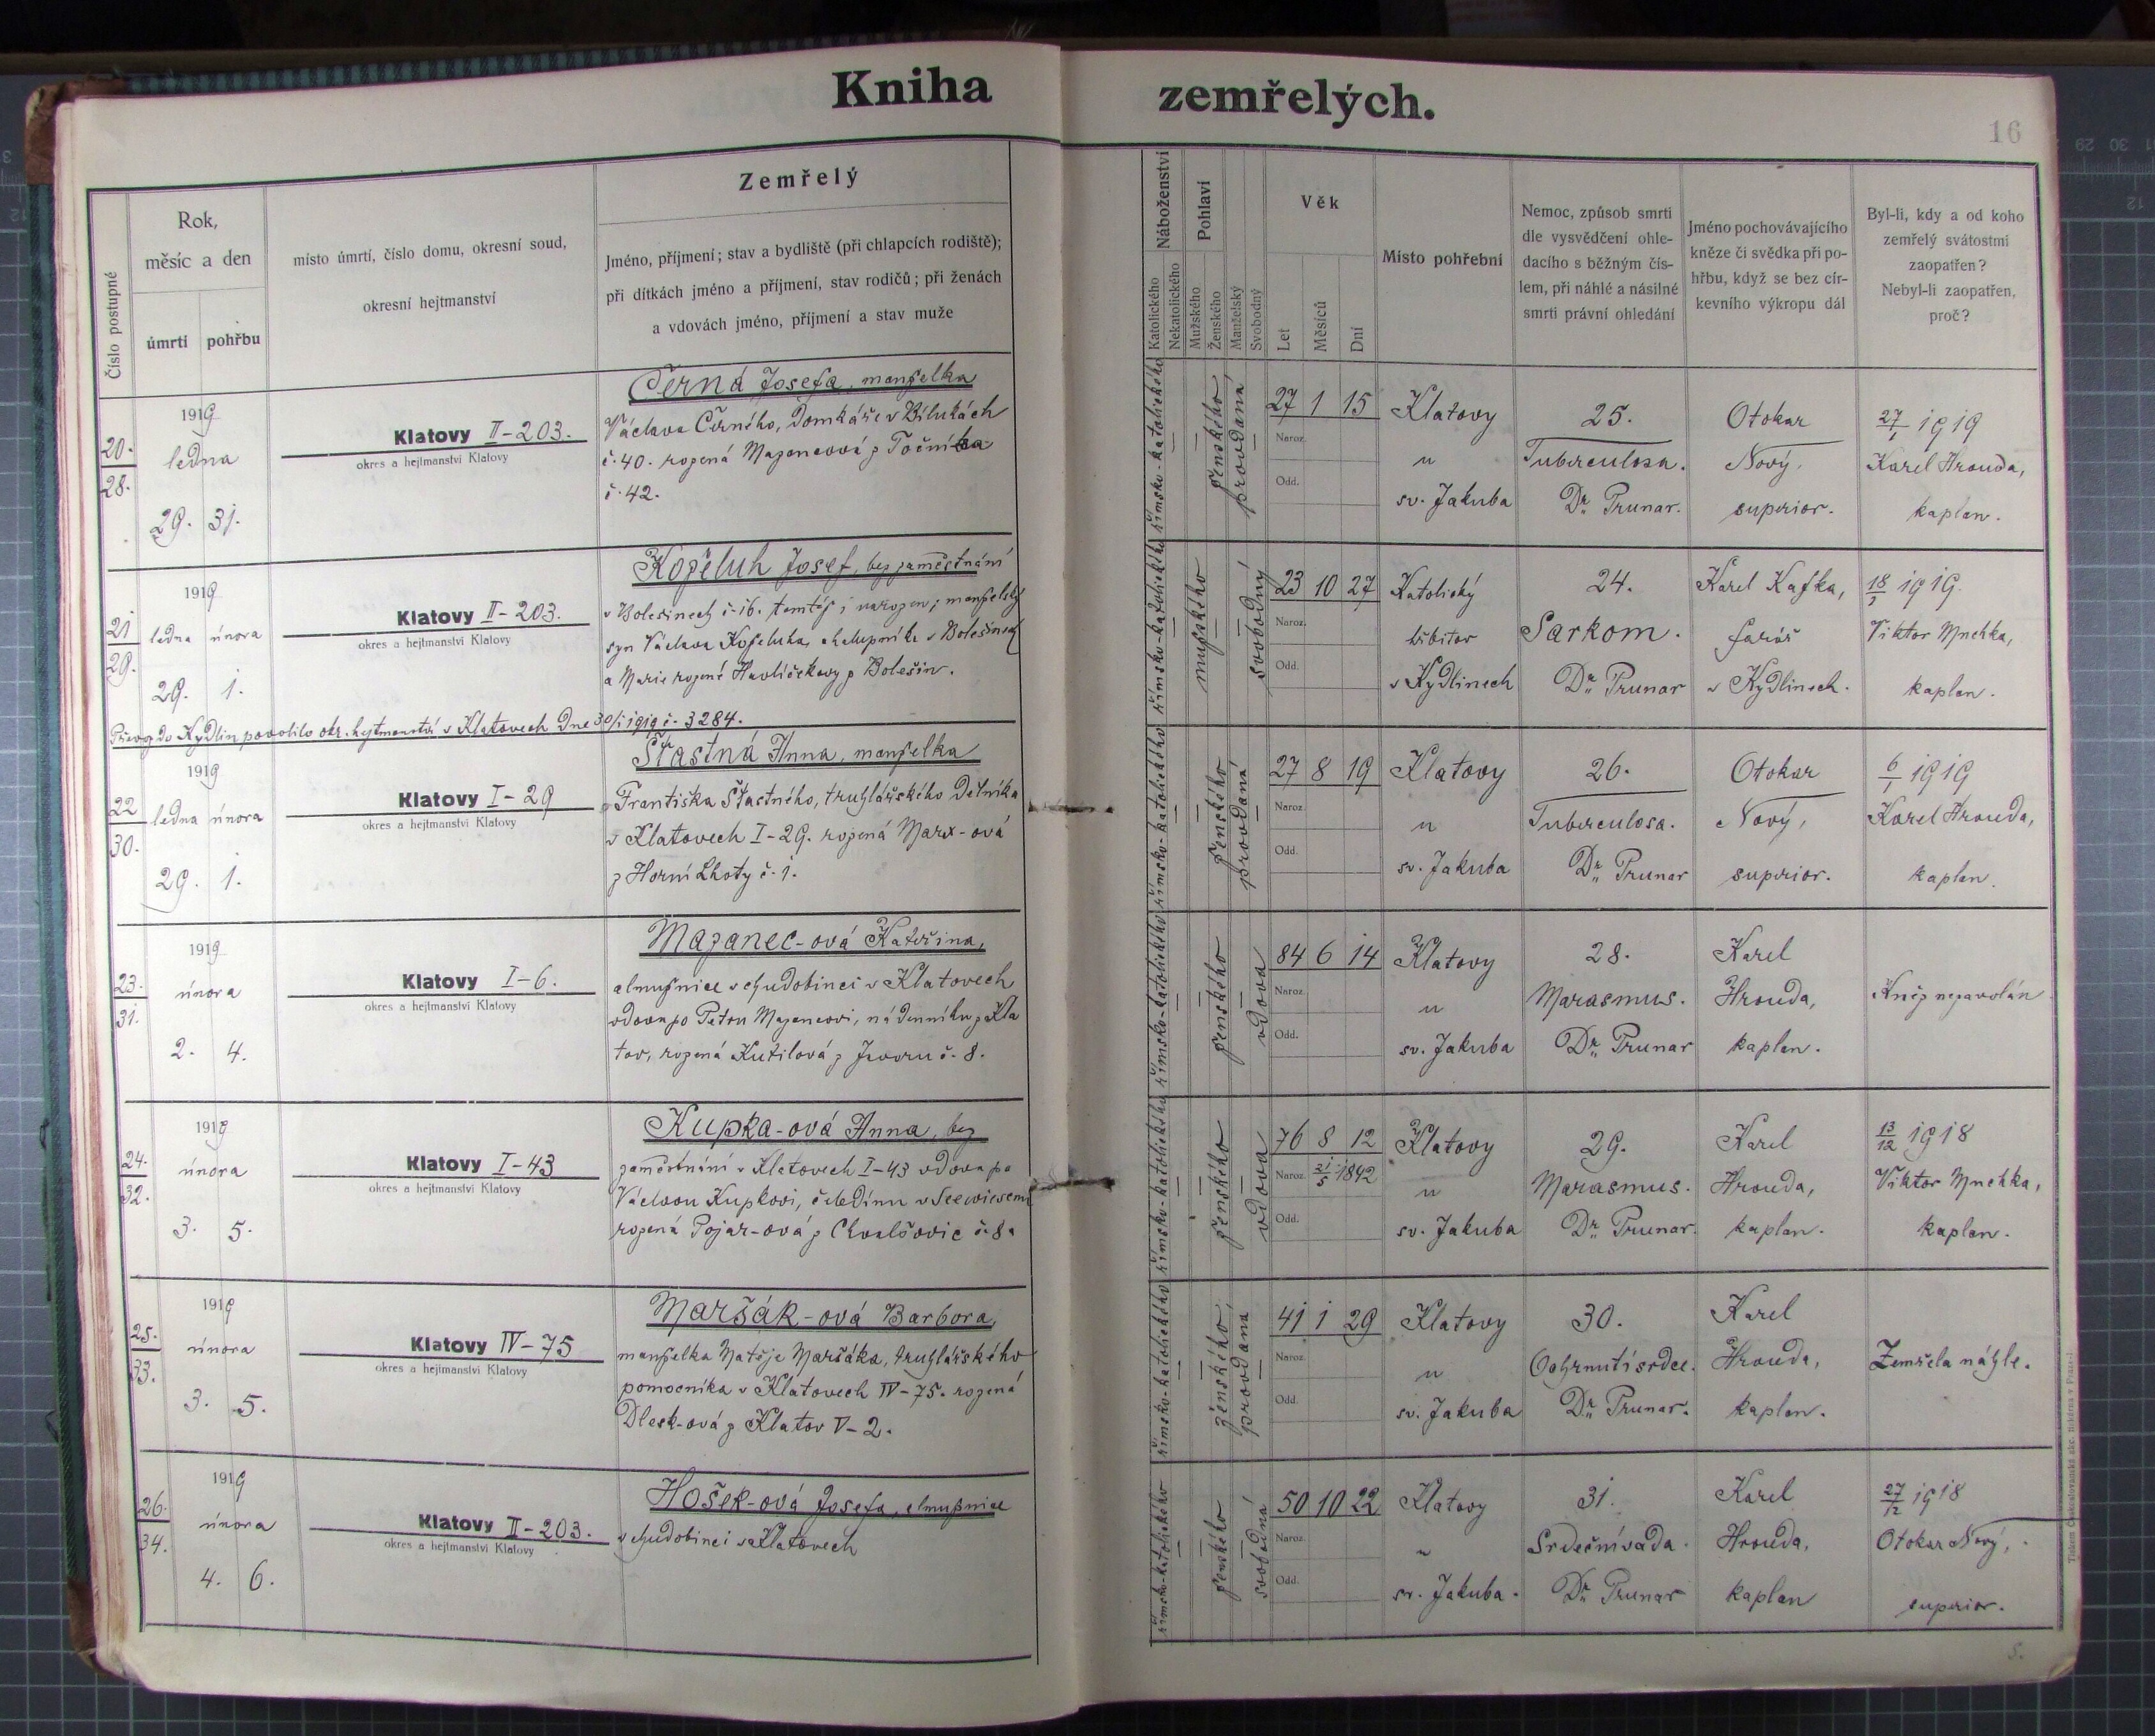 Kniha zemřelých.
16
Číslo postupné
Rok,
měsíc a den
úmrtí
pohřbu
místo úmrtí, číslo domu, okresní soud,
okresní hejtmanství
Zemřelý
Jméno, příjmení; stav a bydliště (při chlapcích rodiště);
při dítkách jméno a příjmení, stav rodičů; při ženách
a vdovách jméno, příjmení a stav muže
Náboženství
Katolického
Nekatolického
Pohlaví
Mužského
Ženského
Manželský
Svobodný
Věk
Let
Měsíců
Dní
Místo pohřební
Nemoc, způsob smrti
dle vysvědčení ohle-
dacího s běžným čís-
lem, při náhlé a násilné
smrti právní ohledání
Jméno pochovávajícího
kněze či svědka při po-
hřbu, když se bez cír-
kevního výkropu dál
Byl-li, kdy a od koho
zemřelý svátostmi
zaopatřen?
Nebyl-li zaopatřen,
proč?
20.
28.
1919
ledna
29. 31.
Klatovy II-203.
okres a hejtmanství Klatovy
Černá Josefa, manželka
Václava Černého, domkáře v Bílukách
č. 40. rozená Mazancová z Točníka
č. 42.
římsko-katolického
ženského
provdaná
27 1 15
Naroz.
Odd.
Klatovy
u
sv. Jakuba
25.
Tuberculosa.
Dr. Prunar.
Otokar
Nový,
superior.
27/1 1919
Karel Hrouda,
kaplan.
21
29.
1919
ledna února
29. 1.
Klatovy II-203.
okres a hejtmanství Klatovy
Koželuh Josef, bez zaměstnání
v Bolešinech č. 16. tamtéž i narozen; manželský
syn Václava Koželuha, chalupníka v Bolešinech
a Marie rozené Havlíčkovy z Bolešin.
Převoz do Kydlin povolilo okr. hejtmanství v Klatovech dne 30/1 1919 č. 3284.
římsko-katolického
mužského
svobodný
23 10 27
Naroz.
Odd.
Katolický
hřbitov
v Kydlinech
24.
Sarkom.
Dr. Prunar
Karel Kafka,
farář
v Kydlinech.
18/1 1919.
Viktor
kaplan.
22
30.
1919
ledna února
29. 1.
Klatovy I-29
okres a hejtmanství Klatovy
Šťastná Anna, manželka
Františka Šťastného, truhlářského dělníka
v Klatovech I-29. rozená Marx-ová
z Horní Lhoty č. 1.
římsko-katolického
ženského
provdaná
27 8 19
Naroz.
Odd.
Klatovy
u
sv. Jakuba
26.
Tuberculosa.
Dr. Prunar
Otokar
Nový,
superior.
6/1 1919
Karel Hrouda,
kaplan.
23.
31.
1919
února
2. 4.
Klatovy I-6.
okres a hejtmanství Klatovy
Mazanec-ová Kateřina,
almužnice v chudobinci v Klatovech
vdova po Petru Mazancovi, nádenníku z Kla
tov, rozená Kutilová z Javoru č. 8.
římsko-katolického
ženského
vdova
84 6 14
Naroz.
Odd.
Klatovy
u
sv. Jakuba
28.
Marasmus.
Dr. Prunar
Karel
Hrouda,
kaplan.
Kněz nepavolán
24.
32.
1919
února
3. 5.
Klatovy I-43
okres a hejtmanství Klatovy
Kupka-ová Anna, bez
zaměstnání v Klatovech I-43 vdova po
Václavu Kupkovi, čeledínu v Seewiesenu
rozená Pojar-ová z Chvalšovic č. 8.
římsko-katolického
ženského
vdova
76 8 12
Naroz. 21/5 1842
Odd.
Klatovy
u
sv. Jakuba
29.
Marasmus.
Dr. Prunar.
Karel
Hrouda,
kaplan.
13/12 1918
Viktor
kaplan.
25.
33.
1919
února
3. 5.
Klatovy IV-75
okres a hejtmanství Klatovy
Maršák-ová Barbora,
manželka Matěje Maršáka, truhlářského
pomocníka v Klatovech IV-75. rozená
Dlesk-ová z Klatov V-2.
římsko-katolického
ženského
provdaná
41 1 29
Naroz.
Odd.
Klatovy
u
sv. Jakuba
30.
Ochrnutí srdce.
Dr. Prunar.
Karel
Hrouda,
kaplan.
Zemřela náhle.
26.
34.
1919
února
4. 6.
Klatovy II-203.
okres a hejtmanství Klatovy
Hošek-ová Josefa, almužnice
v chudobinci v Klatovech
římsko-katolického
ženského
svobodná
50 10 22
Naroz.
Odd.
Klatovy
u
sv. Jakuba.
31.
Srdeční vada.
Dr. Prunar
Karel
Hrouda,
kaplan
27/12 1918
Otokar Nový,
superior.
5.